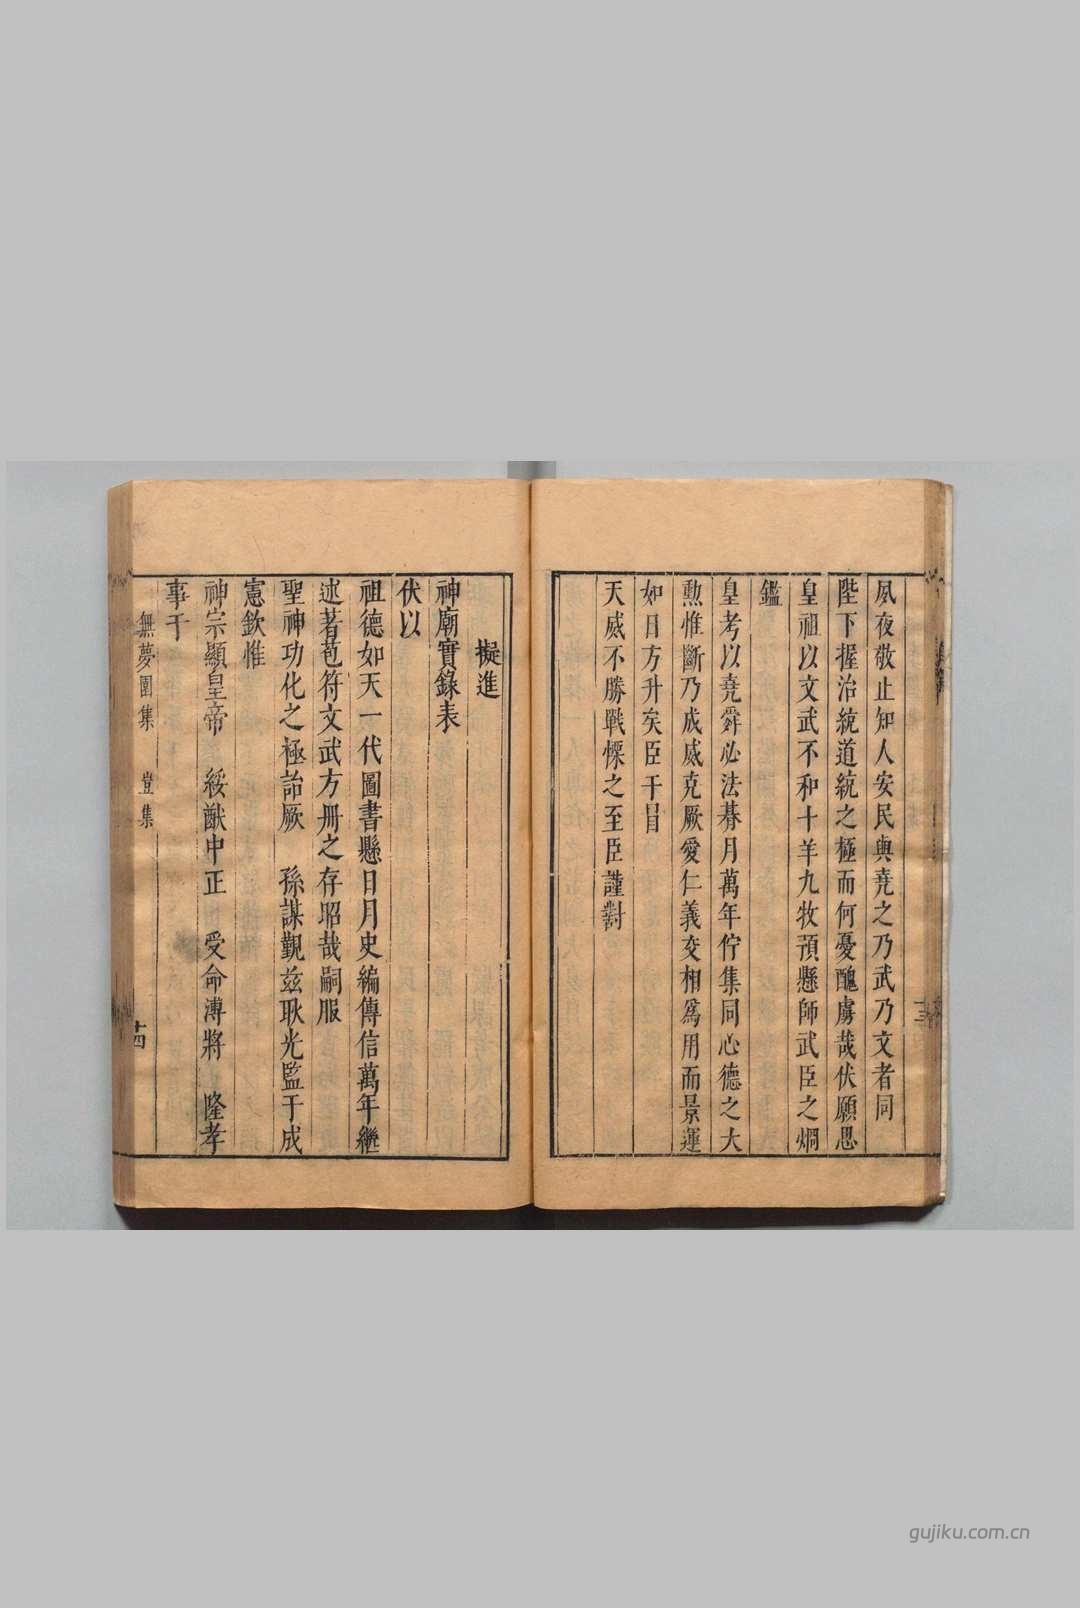 夙夜敬止知人安民與堯之乃武乃文者同
陛下握治統道統之極而何憂醜虜哉伏願思
皇祖以文武不和十羊九牧預懸師武臣之烱
鑑
皇考以堯舜必法朞月萬年佇集同心德之大
勲惟斷乃成威克厥愛仁義交相爲用而景運
如日方升矣臣干冒
天威不勝戰慄之至臣謹對
擬進
神廟實錄表
伏以
祖德如天一代圖書懸日月史編傳信萬年繼
述著苞符文武方冊之存昭哉嗣服
聖神功化之極詒厥 孫謀覲兹耿光監于成
憲欽惟
神宗顯皇帝 綏猷中正 受命溥將 隆孝
事于
無夢園集 豈集 十四
gujiku.com.cn